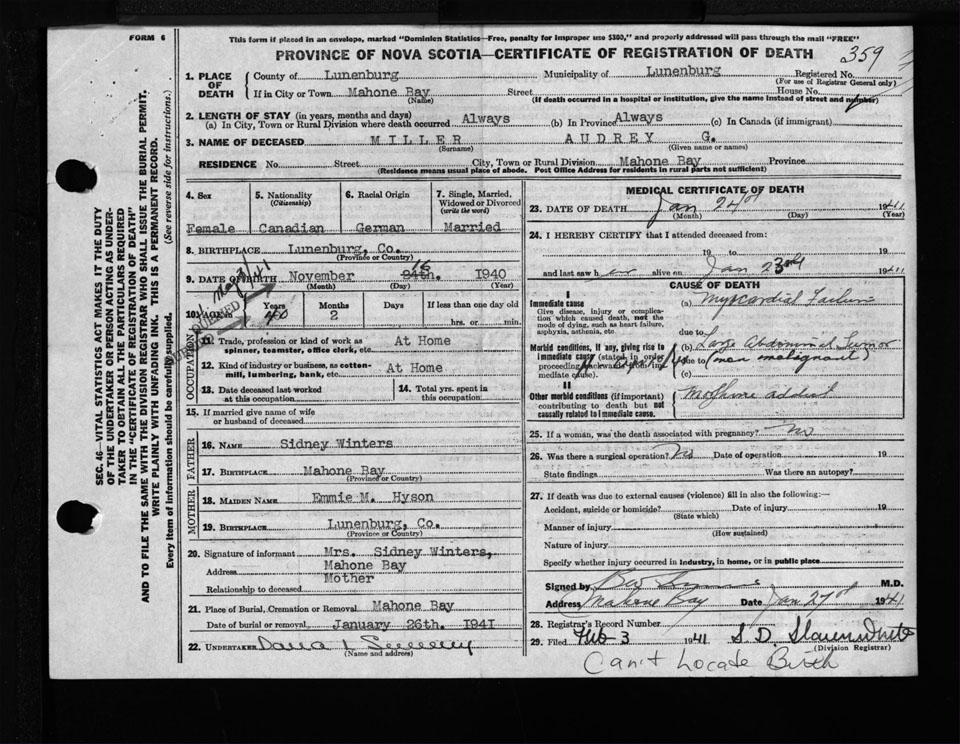 FORM 6
This form if placed in an envelope, marked "Dominion Statistics—Free, penalty for improper use $300," and properly addressed will pass through the mail "FREE"
PROVINCE OF NOVA SCOTIA—CERTIFICATE OF REGISTRATION OF DEATH
359
1. PLACE OF DEATH County of Lunenburg Municipality of Lunenburg Registered No.
(For use of Registrar General only)
If in City or Town Mahone Bay Street House No.
(Name) (If death occurred in a hospital or institution, give the name instead of street and number)
2. LENGTH OF STAY (in years, months and days)
(a) In City, Town or Rural Division where death occurred Always (b) In Province Always (c) In Canada (if immigrant)
3. NAME OF DECEASED MILLER AUDREY G.
(Surname) (Given name or names)
RESIDENCE No. Street City, Town or Rural Division Mahone Bay Province
(Residence means usual place of abode. Post Office Address for residents in rural parts not sufficient)
SEC. 46—VITAL STATISTICS ACT MAKES IT THE DUTY
OF THE UNDERTAKER OR PERSON ACTING AS UNDER-
TAKER TO OBTAIN ALL THE PARTICULARS REQUIRED
IN THE "CERTIFICATE OF REGISTRATION OF DEATH"
AND TO FILE THE SAME WITH THE DIVISION REGISTRAR WHO SHALL ISSUE THE BURIAL PERMIT.
WRITE PLAINLY WITH UNFADING INK. THIS IS A PERMANENT RECORD.
Every item of Information should be carefully supplied. (See reverse side for instructions.)
4. Sex 5. Nationality 6. Racial Origin 7. Single, Married,
(Citizenship) Widowed or Divorced
(write the word)
Female Canadian German Married
8. BIRTHPLACE Lunenburg, Co.
(Province or Country)
9. DATE OF BIRTH November 24th. 16 1940
(Month) (Day) (Year)
10. AGE Years Months Days If less than one day old
2 hrs. or min.
OCCUPATION
11. Trade, profession or kind of work as At Home
spinner, teamster, office clerk, etc.
12. Kind of industry or business, as cotton- At Home
mill, lumbering, bank, etc.
13. Date deceased last worked 14. Total yrs. spent in
at this occupation this occupation
15. If married give name of wife
or husband of deceased
FATHER
16. NAME Sidney Winters
17. BIRTHPLACE Mahone Bay
(Province or Country)
MOTHER
18. MAIDEN NAME Emmie M. Hyson
19. BIRTHPLACE Lunenburg, Co.
(Province or Country)
20. Signature of informant Mrs. Sidney Winters,
Address Mahone Bay
Relationship to deceased Mother
21. Place of Burial, Cremation or Removal Mahone Bay
Date of burial or removal January 26th. 1941
22. UNDERTAKER
(Name and address)
MEDICAL CERTIFICATE OF DEATH
23. DATE OF DEATH Jan 24th 1941
(Month) (Day) (Year)
24. I HEREBY CERTIFY that I attended deceased from:
19 to 19
and last saw her alive on Jan 23rd 1941
CAUSE OF DEATH
I
Immediate cause (a) Myocardial Failure
Give disease, injury or complica-
tion which caused death, not the
mode of dying, such as heart failure,
asphyxia, asthenia, etc. due to
Morbid conditions, if any, giving rise to (b) Large Abdominal Tumor
immediate cause (stated in order due to (non malignant)
proceeding backwards from im-
mediate cause). (c)
II
Other morbid conditions (if important) Morphine addict
contributing to death but not
causally related to immediate cause.
25. If a woman, was the death associated with pregnancy? No
26. Was there a surgical operation? No Date of operation 19
State findings Was there an autopsy?
27. If death was due to external causes (violence) fill in also the following:—
Accident, suicide or homicide? Date of injury 19
(State which)
Manner of injury
(How sustained)
Nature of injury
Specify whether injury occurred in industry, in home, or in public place
Signed by M.D.
Address Mahone Bay Date Jan 27 1941
28. Registrar's Record Number
29. Filed Feb 3 1941 S. D.
(Division Registrar)
Can't Locate Birth